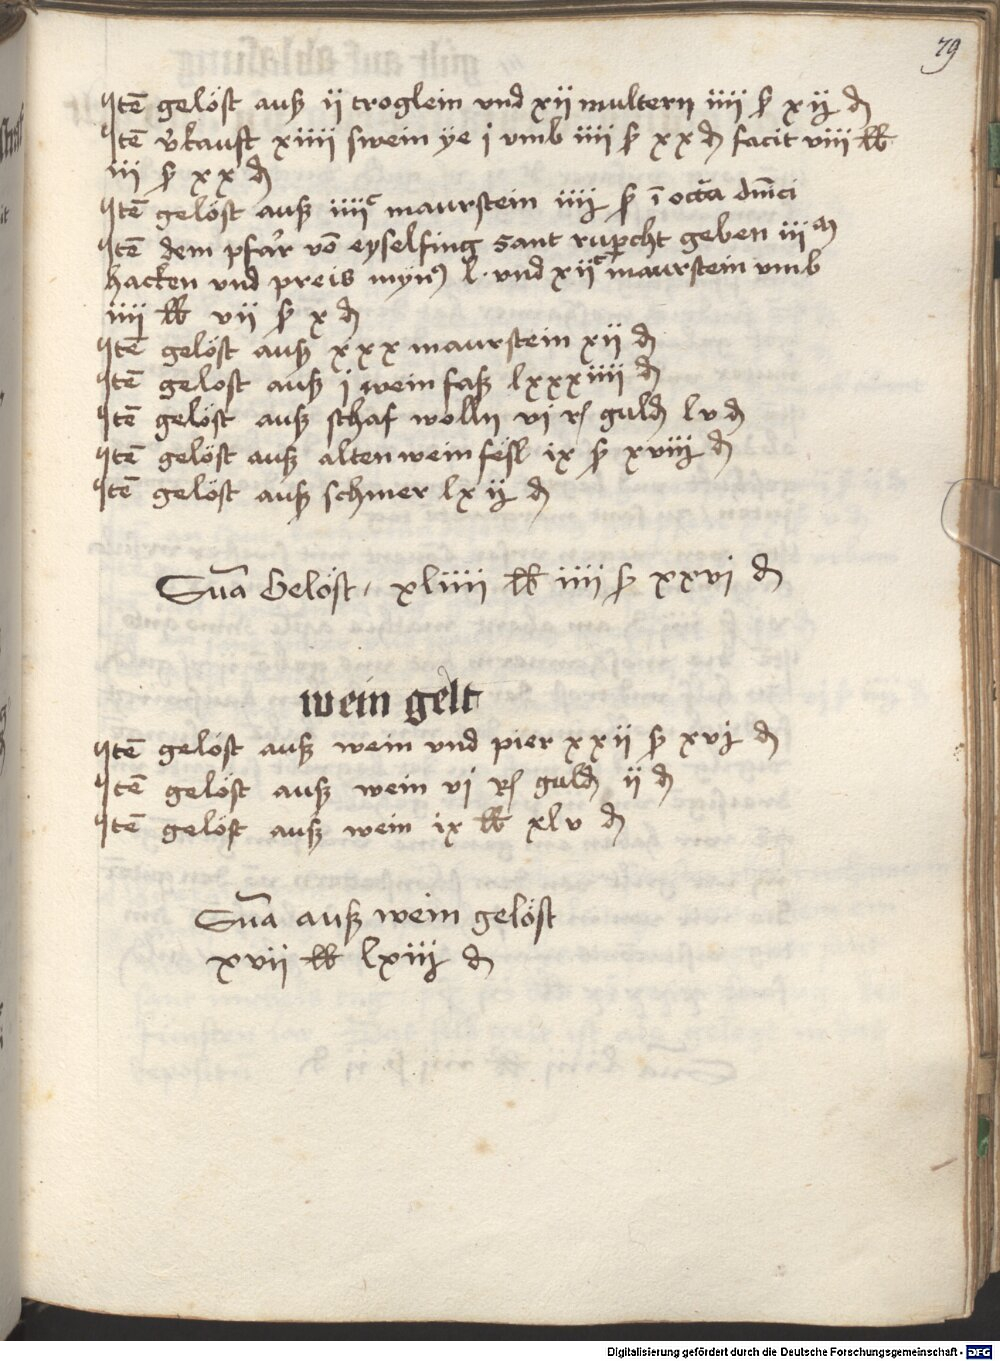 79
Itē gelöst auß ii troglein vnd xii multern iiii ß xij d
Itē v̾kauft xiiii swein ye i vmb iiii ß xx d facit viii lb
iii ß xx d
Itē gelöst auß iiiiᶜ maurstein iiij ß ī octa dnīci
Itē dem pfar̾ vō eyselfing sant rupr̄cht geben iiiᵐ
hacken vnd preis l vnd xiiᶜ maurstein vmb
iiii lb vii ß x d
Itē gelöst auß xxx maurstein xii d
Itē gelost auß i wein faß lxxxiiii d
Itē gelöst auß schaf wolln vi rh guld lv d
Itē gelöst auß alten wein fesl ix ß xviij d
Itē gelöst auß schmer lxij d
Sūa Gelöst xliiii lb iiii ß xxvi d
wein gelt
Itē gelöst auß wein vnd pier xxii ß xvj d
Itē gelöst auß wein vi rh guld ii d
Itē gelöst auß wein ix lb xlv d
Sūa auß wein gelöst
xvii lb lxiij d
Digitalisierung gefördert durch die Deutsche Forschungsgemeinschaft - DFG